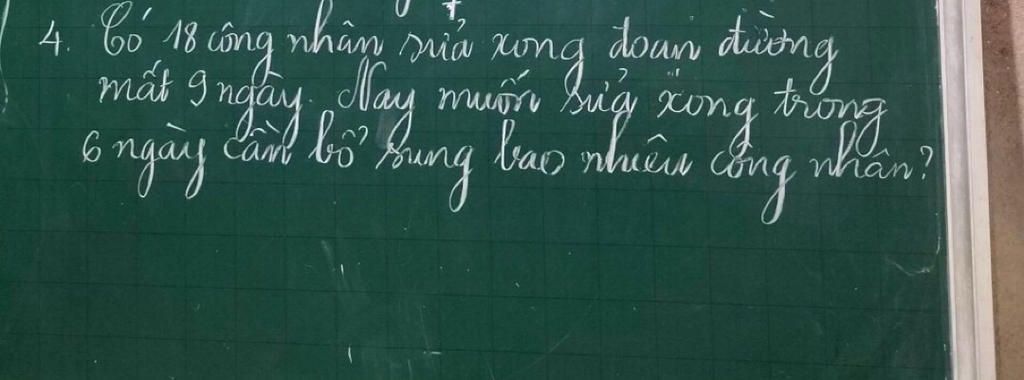 4. Có 18 công nhân sửa xong đoạn đường
mất 9 ngày. Nay muốn sửa xong trong
6 ngày cần bổ sung bao nhiêu công nhân?